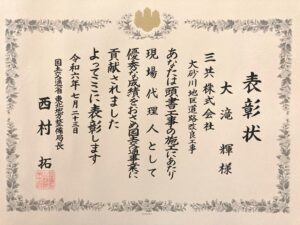 表彰状
三共株式会社
大滝輝様
大砂川地区道路改良工事
あなたは頭書工事の施工にあたり
現場代理人として
優秀な成績をおさめ国土交通事業に
貢献されました
よってここに表彰します
令和六年七月二十三日
国土交通省東北地方整備局長
西村拓